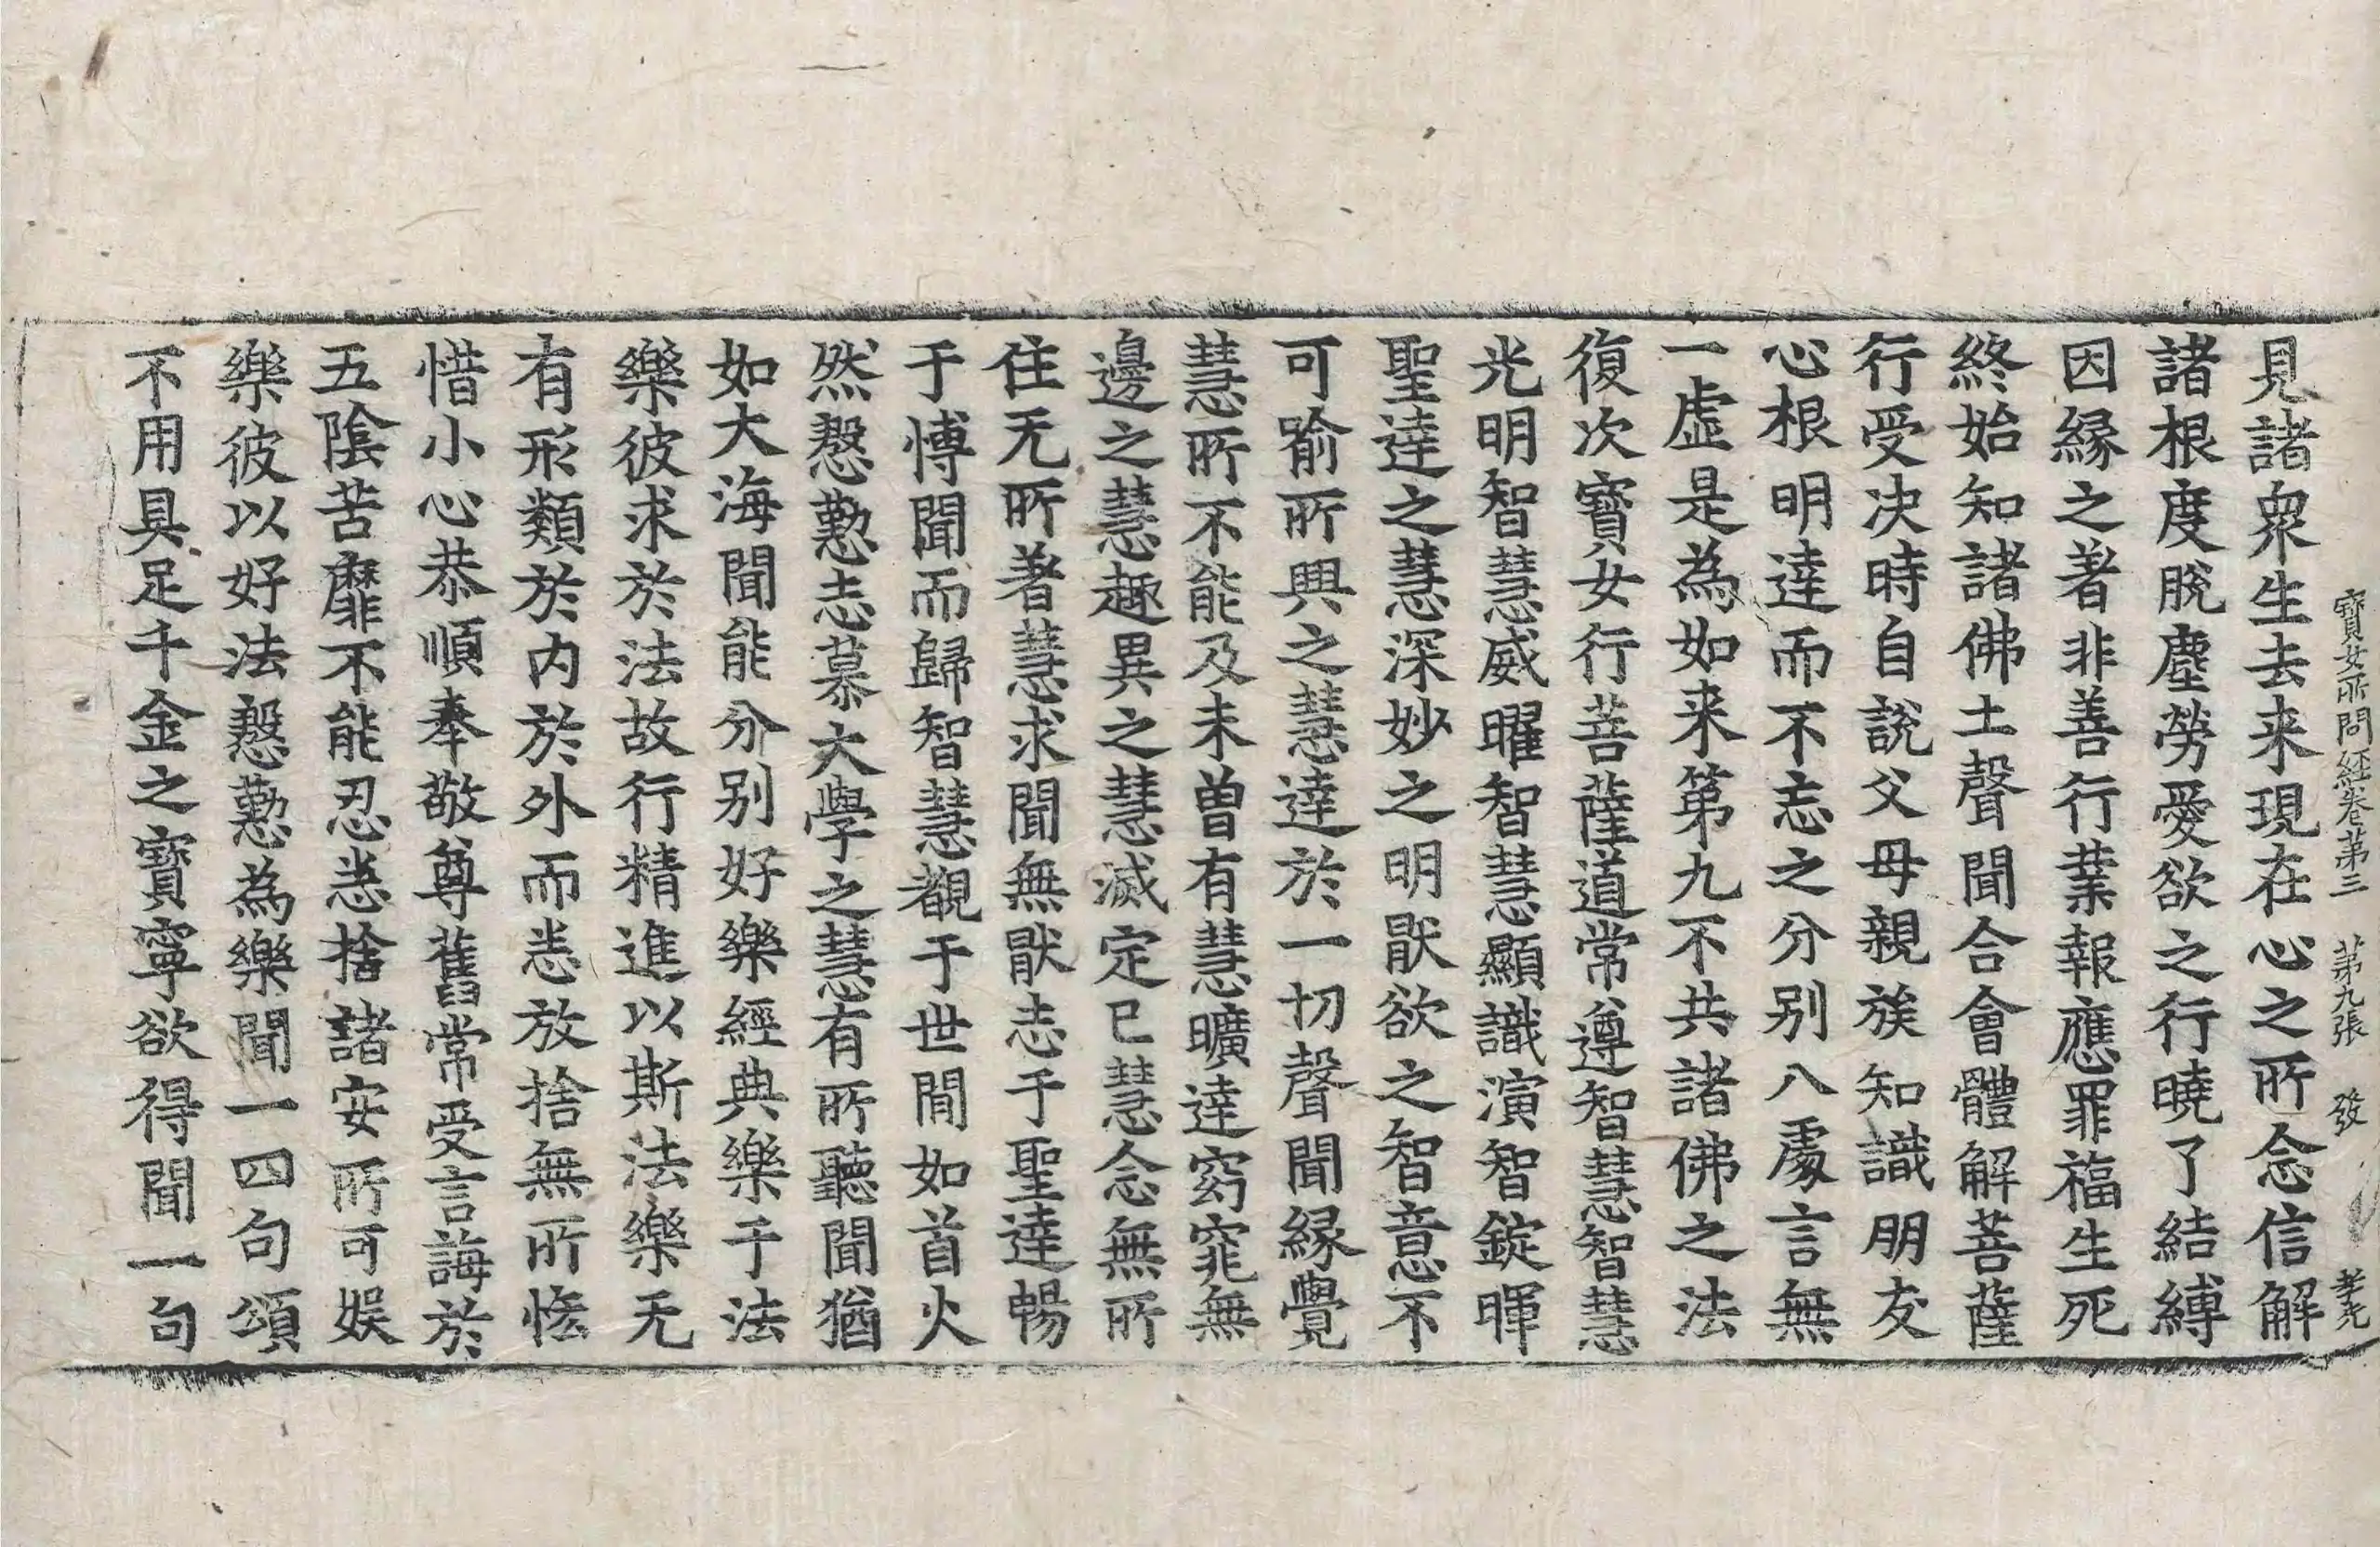 寶女所問経卷第三　第九張　發
見諸衆生去来現在心之所念信解
諸根度脫塵勞愛欲之行曉了結縛
因縁之著非善行業報應罪福生死
終始知諸佛土聲聞合會體解菩薩
行受决時自說父母親族知識朋友
心根明達而不忘之分别八處言無
一虛是為如来第九不共諸佛之法
復次寶女行菩薩道常遵智慧智慧
光明智慧威曜智慧顯識演智錠暉
聖達之慧深妙之明猒欲之智意不
可喻所興之慧達於一切聲聞縁覺
慧所不能及未曽有慧曠達窈窕無
邊之慧趣異之慧滅定已慧念無所
住无所著慧求聞無猒志于聖達暢
于愽聞而歸智慧觀于世間如首火
然慇懃志慕大學之慧有所聽聞猶
如大海聞能分别好樂經典樂于法
樂彼求於法故行精進以斯法樂无
有形類於内於外而恚放捨無所悋
惜小心恭順奉敬尊舊常受言誨於
五陰苦靡不能忍恚捨諸安所可娱
樂彼以好法慇懃為樂聞一四句頌
不用具足千金之寶寧欲得聞一句